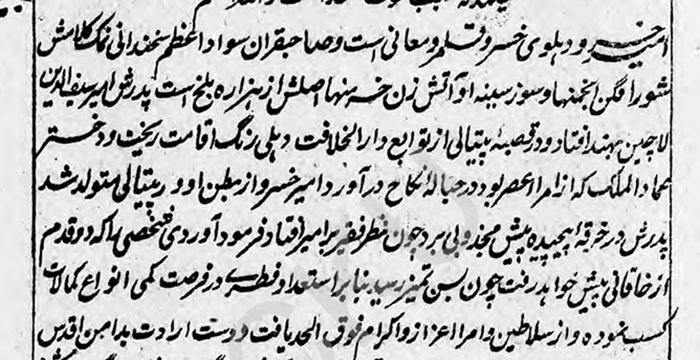 امیر خسرو دہلوی خسرو قلمرو معانی است و صاحبقران سواد اعظم سخندانی نمک کلامش
شور افگن انجمنها و سوز سینهٔ او آتش زن خرمنها اصلش از ہزارہ بلخ است پدرش امیر سیف الدین
لاچین بہند افتاد و در قصبۂ پتیالی از توابع دار الخلافت دہلی رنگ اقامت ریخت و دختر
عماد الملک کہ از امراء عصر بود در حبالۂ نکاح در آورد امیر خسرو از بطن او در پتیالی متولد شد
پدرش در خرقہ پیچیدہ پیش مجذوبی برد چون نظر فقیر بر امیر افتاد فرمود آوردی شخصی را کہ دو قدم
از خاقانی پیش خواہد رفت چون بسن تمیز رسید بنا بر استعداد فطری در فرصت کمی انواع کمالات
کسب نمودہ و از سلاطین و امرا اعزاز و اکرام فوق الحد یافت و دست ارادت بدامن اقدس